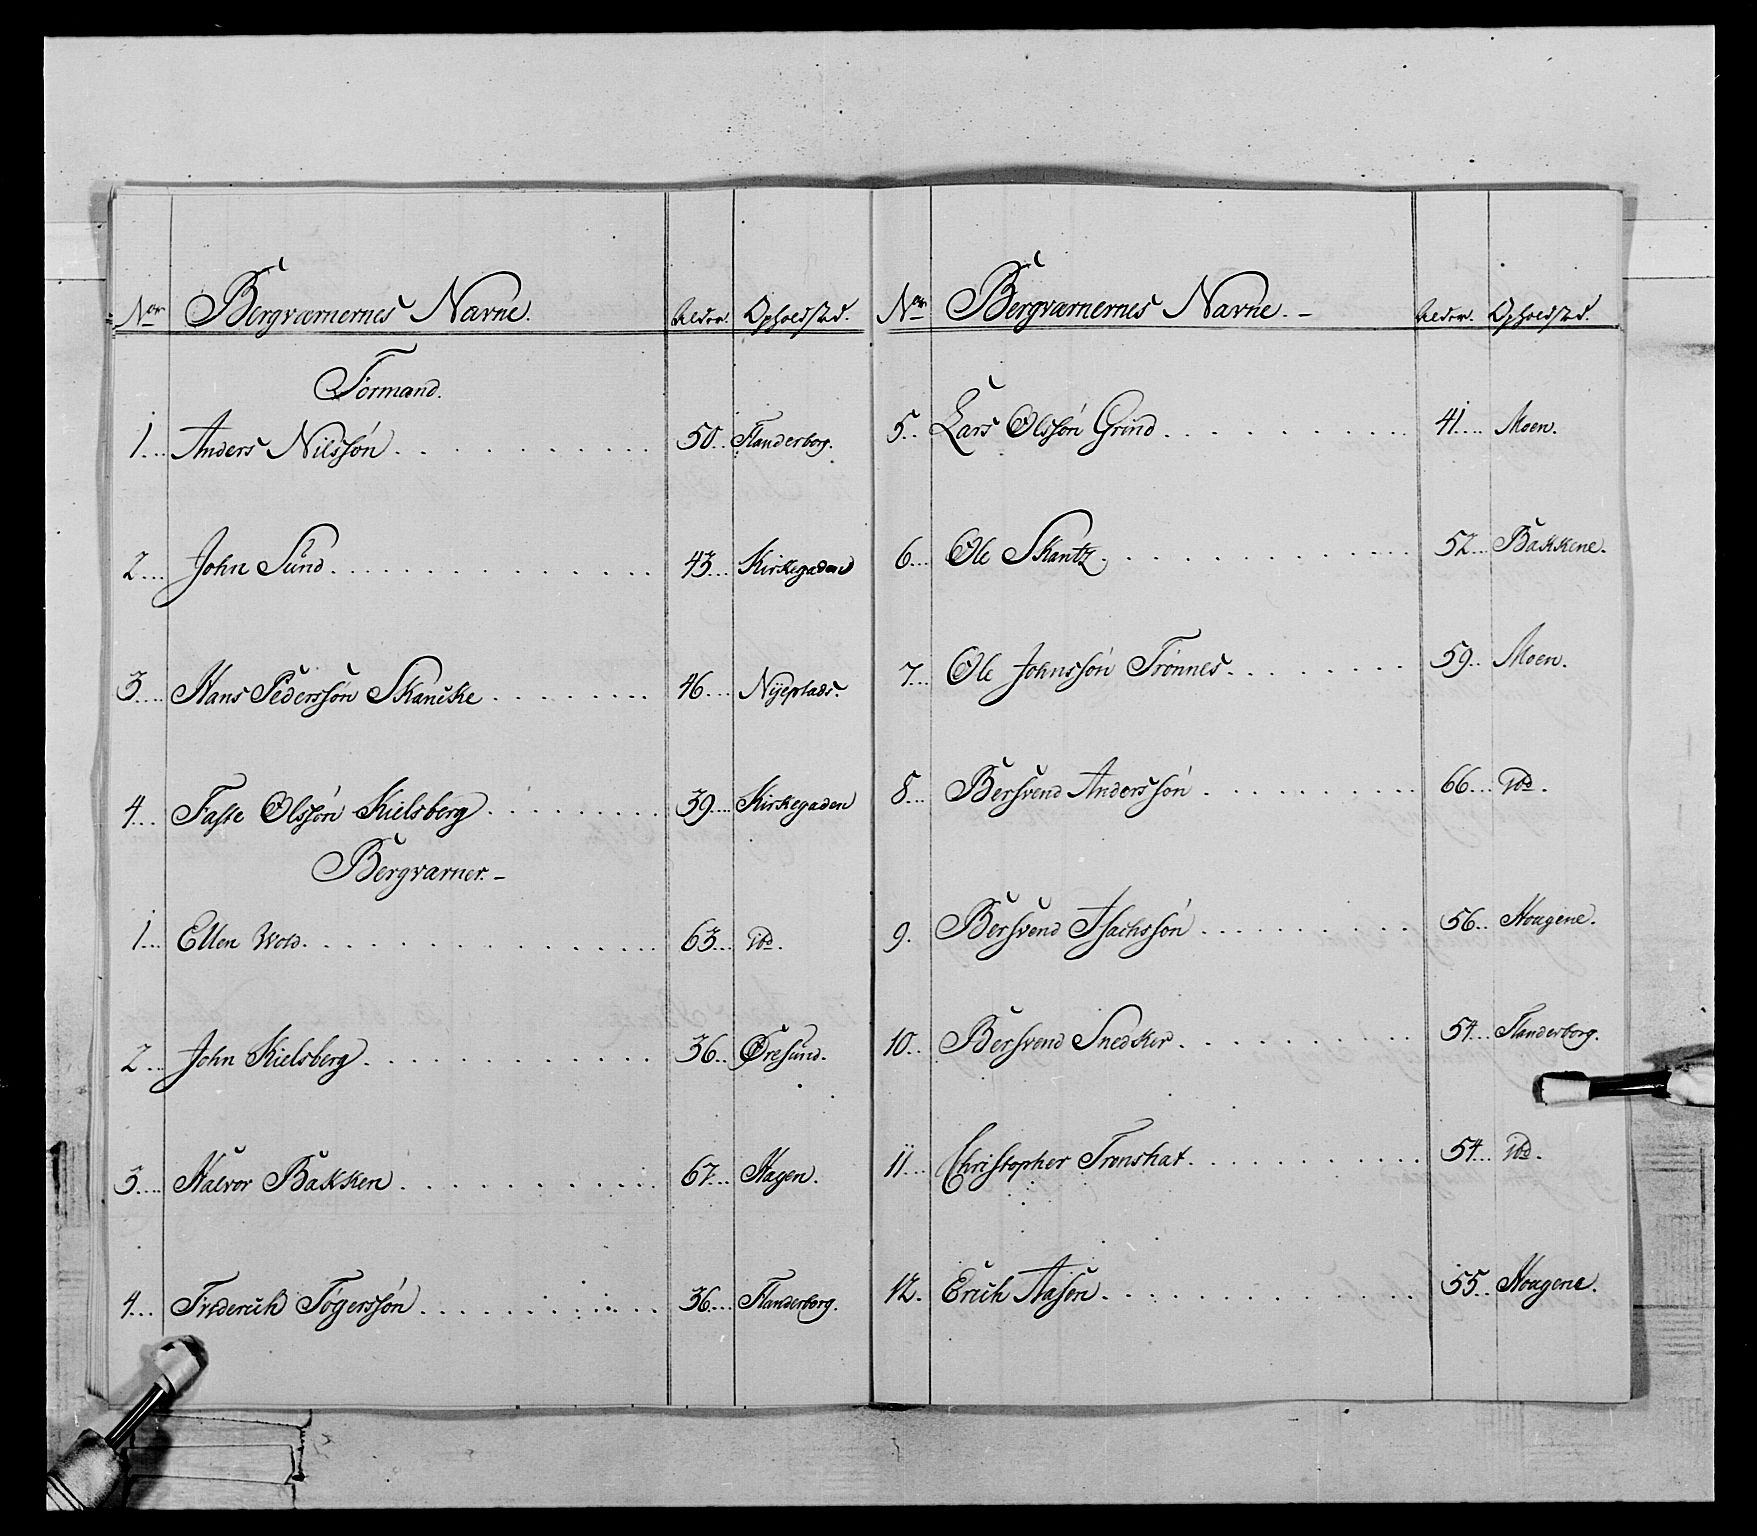 Nor Bergværnernes Navne. Alder. Opholdsted.
Formand.
1... Anders Nilssøn. 50.. Flanderborg.
2... John Sund. 43... Kirkegaden
3... Hans Pederssøn Skancke 46... Nyeplads.
4... Faste Olssøn Kielsberg 39... Kirkegaden
Bergværner. -
1... Ellen Wold. 63... ibd.
2... John Kielsberg. 36.. Øresund.
3... Halvor Bakken 67... Hagen.
4... Friderich Tøgerssøn 36... Flanderborg.
Nor Bergværnernes Navne. - Alder. Opholdsted.
5.. Lars Olssøn Grind 41... Moen.
6... Ole Skantz. 52... Bakkene.
7... Ole Johnssøn Trønnes. 59.. Moen.
8... Bersvend Anderssøn 66... ibd.
9. Bersvend Isachssøn 56.. Hougene.
10.. Bersvend Snedker. 54... Flanderborg.
11... Christopher Trønshat. 54... ibd.
12. Erich Aasen. 55.. Hougene.